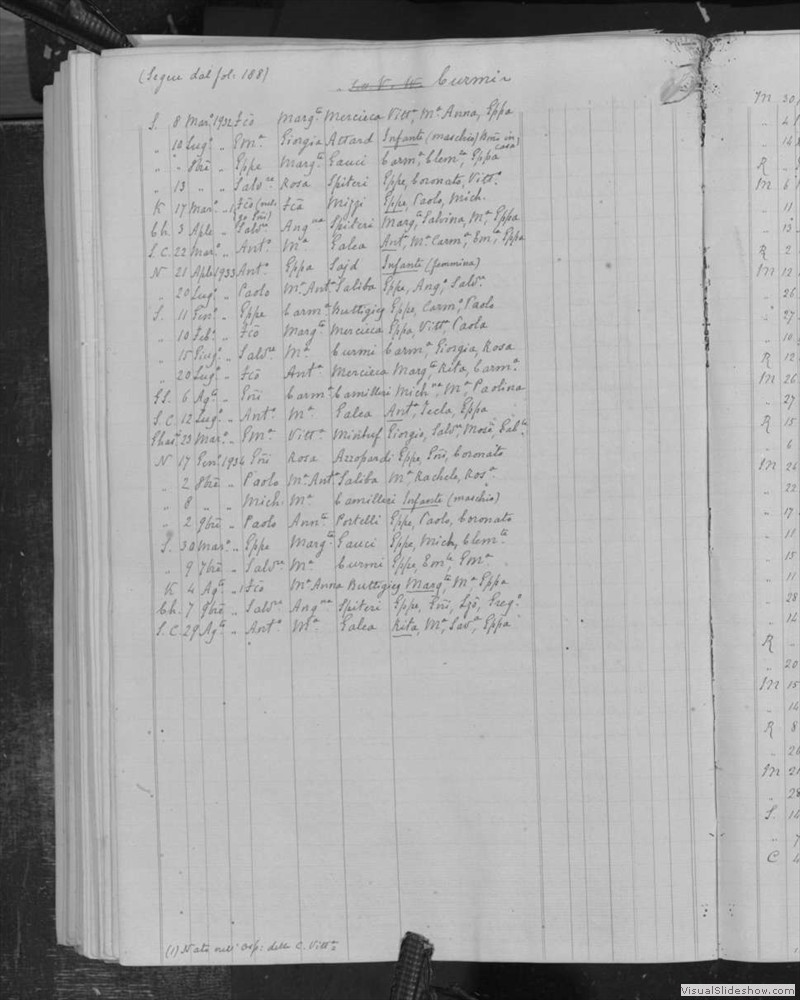 (Segue dal fol: 188)
Curmi
S. 8 Mar. 1932 Fco Marg.ta Mercieca Vitt.a, M.a Anna, Eppa
" 10 Lug.o " Em.a Giorgia Attard Infante (maschio) in casa)
" " 8bre " Eppe Marg.ta Gauci Carm.a, Clem.ta, Eppa
" 13 " " Salv.re Rosa Spiteri Eppe, Coronato, Vitt.o
K 17 Mar. " Fco Fca Mizzi Eppe, Paolo, Mich.
Ch. 3 Aple " Salv.re Ang.na Spiteri Marg.ta, Salvina, M.a Eppa
S.C. 22 Mar. " Ant.o M.a Galea Ant.a, M.a Carm.a, Em.la, Eppa
N 21 Aple 1933 Ant.o Eppa Sajd Infante (femmina)
" 20 Lug.o " Paolo M.a Ant.a Saliba Eppe, Ang.o, Salv.re
S. 11 Gen.o " Eppe Carm.a Buttigieg Eppe, Carm.o, Paolo
" 10 Feb.o " Fco Marg.ta Mercieca Eppa, Vitt.a, Paola
" 15 Giug.o " Salv.re M.a Curmi Carm.a, Giorgia, Rosa
" 20 Lug.o " Fco Ant.a Mercieca Marg.ta, Rita, Carm.a
GS. 6 Ag.to " Gni Carm.a Camilleri Mich.na, M.a, Paolina
S.C. 12 Lug.o " Ant.o M.a Galea Ant.a, Tecla, Eppa
Ghas. 23 Mar. " Em.a Vitt.a Mintuf Giorgio, Salv.re, Mosè, Gab.le
N 17 Gen.o 1934 Gni Rosa Azzopardi Eppe, Gni, Coronato
" 2 8bre " Paolo M.a Ant.a Saliba M.a, Rachele, Ros.a
" 8 " " Mich. M.a Camilleri Infante (maschio)
" 2 9bre " Paolo Ann.ta Portelli Eppe, Paolo, Coronato
S. 30 Mar. " Eppe Marg.ta Gauci Eppe, Mich., Clem.te
" 9 7bre " Salv.re M.a Curmi Eppe, Em.le, Em.a
K 4 Ag.to " Fco M.a Anna Buttigieg Marg.ta, M.a Eppa
Ch. 7 9bre " Salv.re Ang.na Spiteri Eppe, Gni, Greg.o
S.C. 29 Ag.to " Ant.o M.a Galea Rita, M.a, Sav.a, Eppa
(1) Nato nell' Osp: della C. Vitt.a
M 30
R
M 6
" 11
" 13
R 2
M 12
" 26
" 27
" 10
R 12
M 26
" 27
R 15
" 6
M 24
" 22
" 17
" 11
" 15
" 11
" 28
" 14
R "
" 20
M 15
" 14
R 8
" 26
M 21
" 28
S. 14
" 7
C 4
VisualSlideshow.com